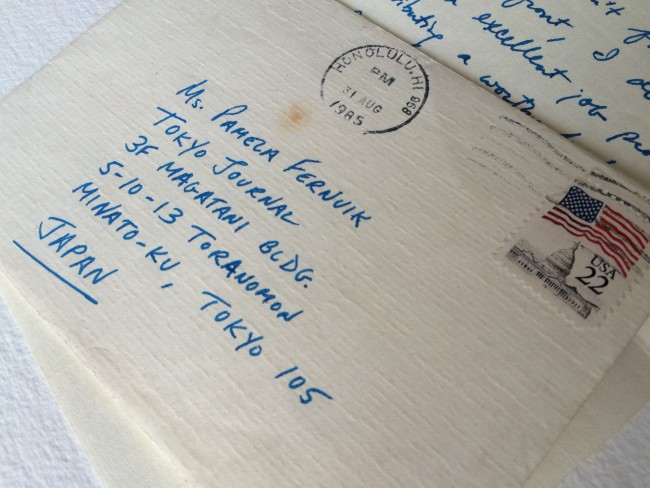 HONOLULU, HI
PM
31 AUG
1985
968
Ms. PAMELA FERNUIK
TOKYO JOURNAL
3F MAGATANI BLDG.
5-10-13 TORANOMON
MINATO-KU, TOKYO 105
JAPAN
USA
22
front
I
excellent
job
a